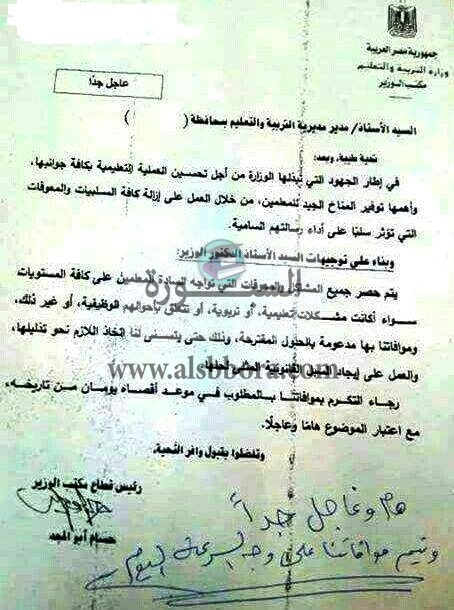 جمهورية مصر العربية
وزارة التربية والتعليم
مكتب الوزير
عاجل جدًا
السيد الأستاذ/ مدير مديرية التربية والتعليم بمحافظة (                    )
تحية طيبة، وبعد:
في إطار الجهود التي تبذلها الوزارة من أجل تحسين العملية التعليمية بكافة جوانبها،
وأهمها توفير المناخ الجيد للمعلمين، من خلال العمل على إزالة كافة السلبيات والمعوقات
التي تؤثر سلبًا على أداء رسالتهم السامية.
وبناء على توجيهات السيد الأستاذ الدكتور الوزير:
يتم حصر جميع المشاكل والمعوقات التي تواجه السادة المعلمين على كافة المستويات
سواء أكانت مشكلات تعليمية، أو تربوية، أو تتعلق بأحوالهم الوظيفية، أو غير ذلك،
وموافاتنا بها مدعومة بالحلول المقترحة، وذلك حتى يتسنى لنا اتخاذ اللازم نحو تذليلها،
والعمل على إيجاد السبل القانونية المثلى لحلها.
رجاء التكرم بموافاتنا بالمطلوب في موعد أقصاه يومان من تاريخه،
مع اعتبار الموضوع هامًا وعاجلًا.
وتفضلوا بقبول وافر التحية.
رئيس قطاع مكتب الوزير
حسام أبو المجد
هام وعاجل جداً
ويتم موافاتنا على وجه السرعة اليوم
السبورة
www.alsbbora.com